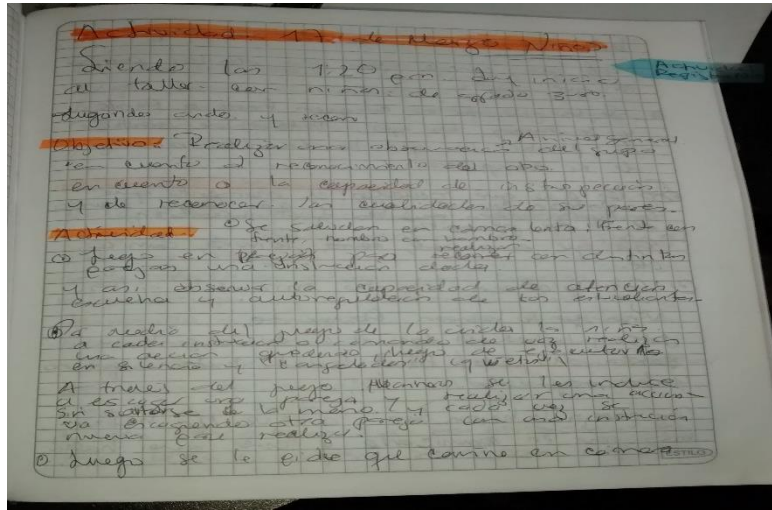 Actividad 17. de Marzo Niños
Siendo las 1:20 pm inicia
al taller con niños de grado 3-
Jugando ando y
Objetivo: Realizar una observación A nivel general del grupo
en cuanto al reconocimiento del otro
en cuento a la capacidad de introspección
y de reconocer las cualidades de su pares.
Actividad. Se saludan en cámara lenta, frente con
frente, hombro con hombro
Juego en parejas para realizar con distintas
parejas una instrucción dada
y así observar la capacidad de atención
escucha y autorregulación de los estudiantes
Por medio del juego de la los niños
a cada instrucción o comando de voz realizan
una acción luego de ejecutarlo
en silencio y congelados
A traves del juego se les induce
a escoger una pareja y realizar una acción
sin soltarse de la mano. y cada vez se
va escogiendo otra pareja con una instrucción
nueva para realizar.
Luego se le pide que camine en camara
ESTILO